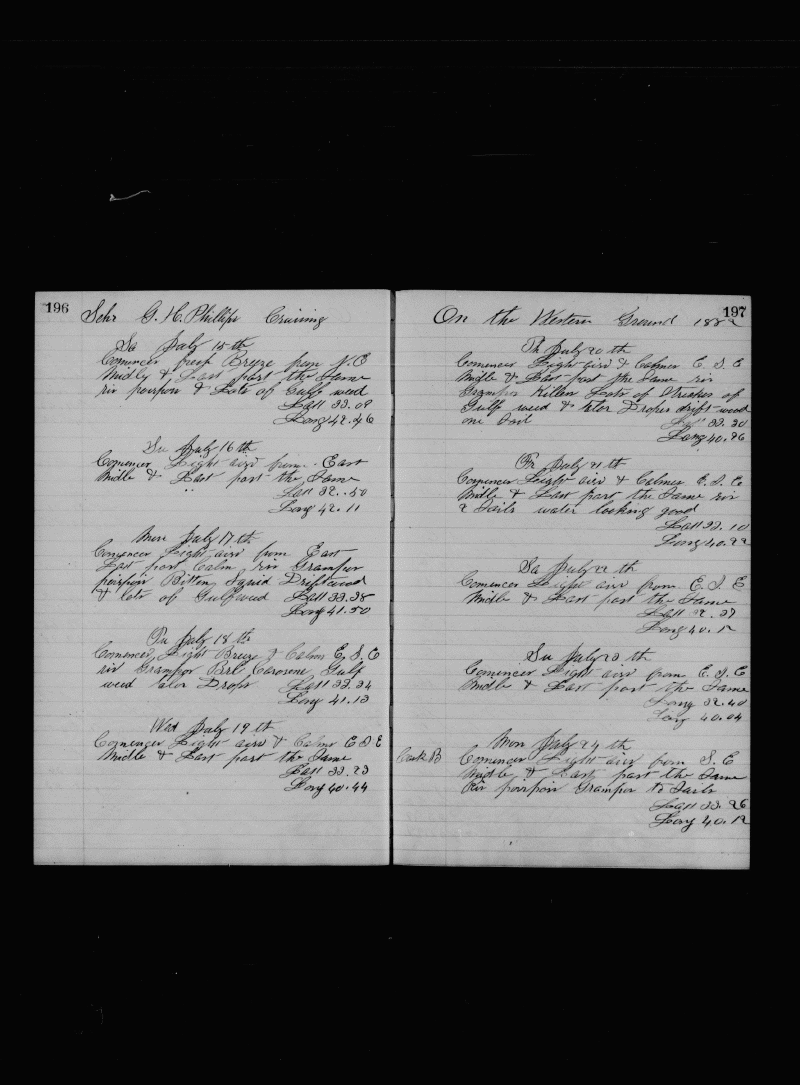 196
Schr G. H. Phillips Cruising
Sa July 15 th
Comences fresh Breze from N. E
Midle & Last part the Same
porpoise & Lots of Gulf weed
Latt 33.09
Long 42.46
Su July 16 th
Comences Light aird from East
Midle & Last part the Same
Latt 32..50
Long 42.11
Mon July 17 th
Comences Light aird from East
Last part Calm Grampus
porpoise Squid Driftwood
& lots of Gulfweed Latt 33.38
Long 41.50
Tu July 18 th
Comences Light Breeze & Calms E. S. E
Grampus Brl Carosene Gulf
weed Drops Latt 33.34
Long 41.13
Wed July 19 th
Comences Light aird & Calms E S E
Midle & Last part the Same
Latt 33.23
Long 40.44
197
On the Western Ground 1882
Th July 20 th
Comences Light aird & Calmes E. S. E
Midle & Last part the Same
Grampus Killers Lots of Streakes of
Gulf weed & Drops drift-wood
one Sail Latt 33.30
Long 40.26
Fr July 21 th
Comences Light aird & Calmes E. S. E
Midle & Last part the Same
2 Sails water looking good
Latt 33.10
Long 40.22
Sa July 22 th
Comences Light aird from E. S. E
Midle & Last part the Same
Latt 32.37
Long 40.12
Su July 23 th
Comences Light aird from E. S. E
Midle & Last part the Same
Long 32.40
Long 40.04
Mon July 24 th
Comences Light aird from S. E
Midle & Last part the Same
porpoise Grampus Sails
Latt 33.26
Long 40.12